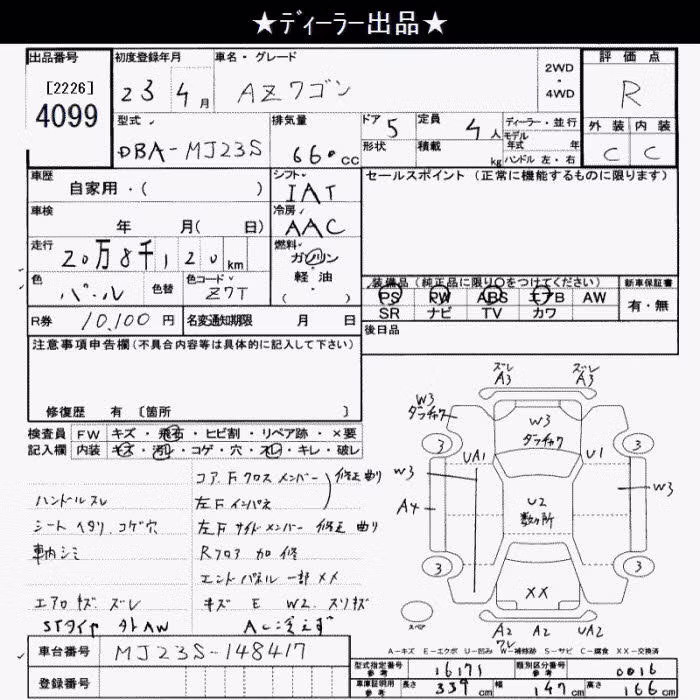 ★ディーラー出品★
出品番号
[2226]
4099
初度登録年月
23 4月
車名・グレード
AZワゴン
2WD
・
4WD
評価点
R
型式
DBA-MJ23S
排気量
660cc
ドア 5
形状
定員 4人
積載 kg
ディーラー・並行
モデル
年式 年
ハンドル 左・右
外装 内装
C C
車歴
自家用・( )
シフト
IAT
セールスポイント (正常に機能するものに限ります)
車検
年 月( 日)
冷房
AAC
走行
20万8千120km
燃料
ガソリン
軽・油
( ・ )
色
パール
色替
色コード
Z7T
装備品 (純正品に限り○をつけてください)
新車保証書
PS PW ABS エアB AW
SR ナビ TV カワ
有・無
R券 10,100円
名変通知期限 月 日
後日品
注意事項申告欄(不具合内容等は具体的に記入して下さい)
修復歴 有 [箇所 ]
検査員
記入欄
FW キズ・飛石・ヒビ割・リペア跡・×要
内装 キズ・汚レ・コゲ・穴・スレ・キレ・破レ
コア.Fクロスメンバー 修正 曲り
ハンドルスレ
左Fインパネ
シートヘタリ.コゲ穴
左Fサイドメンバー 修正 曲り
車内シミ
Rフロア加修
エンドパネル一部××
エアロキズ.ズレ
キズ E W2.スリキズ
STタイヤ 外AW
AC冷えず
ズレ
A3
ズレ
A3
W3
ダッチャク
W3
ダッチャク
3
3
UA1
U1
W3
W3
A4
U2
数ヶ所
3
3
××
スペア
A2
ワレ
A2
UA2
A-キズ E-エクボ U-凹み W-補修跡 S-サビ C-腐食 XX-交換済
車台番号 MJ23S-148417
登録番号
型式指定番号
参考
16171
類別区分番号
参考
0016
車庫証明用
参考
長さ 339cm
幅 147cm
高さ 166cm